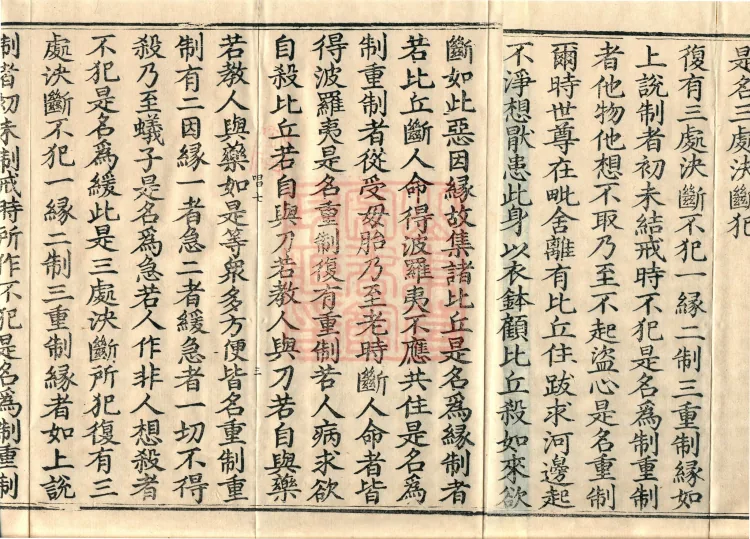 是名三處決斷犯
復有三處決斷不犯一緣二制三重制緣如
上說制者初未結戒時不犯是名為制重制
者他物他想不取乃至不起盜心是名重制
爾時世尊在毗舍離有比丘住跋求河邊起
不淨想厭患此身以衣鉢顧比丘殺如來欲
斷如此惡因緣故集諸比丘是名為緣制者
若比丘斷人命得波羅夷不應共住是名為
制重制者從受母胎乃至老時斷人命者皆
得波羅夷是名重制復有重制若人病求欲
自殺比丘若自與刀若教人與刀若自與藥
唱七
三
若教人與藥如是等眾多方便皆名重制重
制有二因緣一者急二者緩急者一切不得
殺乃至蟻子是名為急若人作非人想殺者
不犯是名為緩此是三處決斷所犯復有三
處決斷不犯一緣二制三重制緣者如上說
制者初未制戒時所作不犯是名為制重制